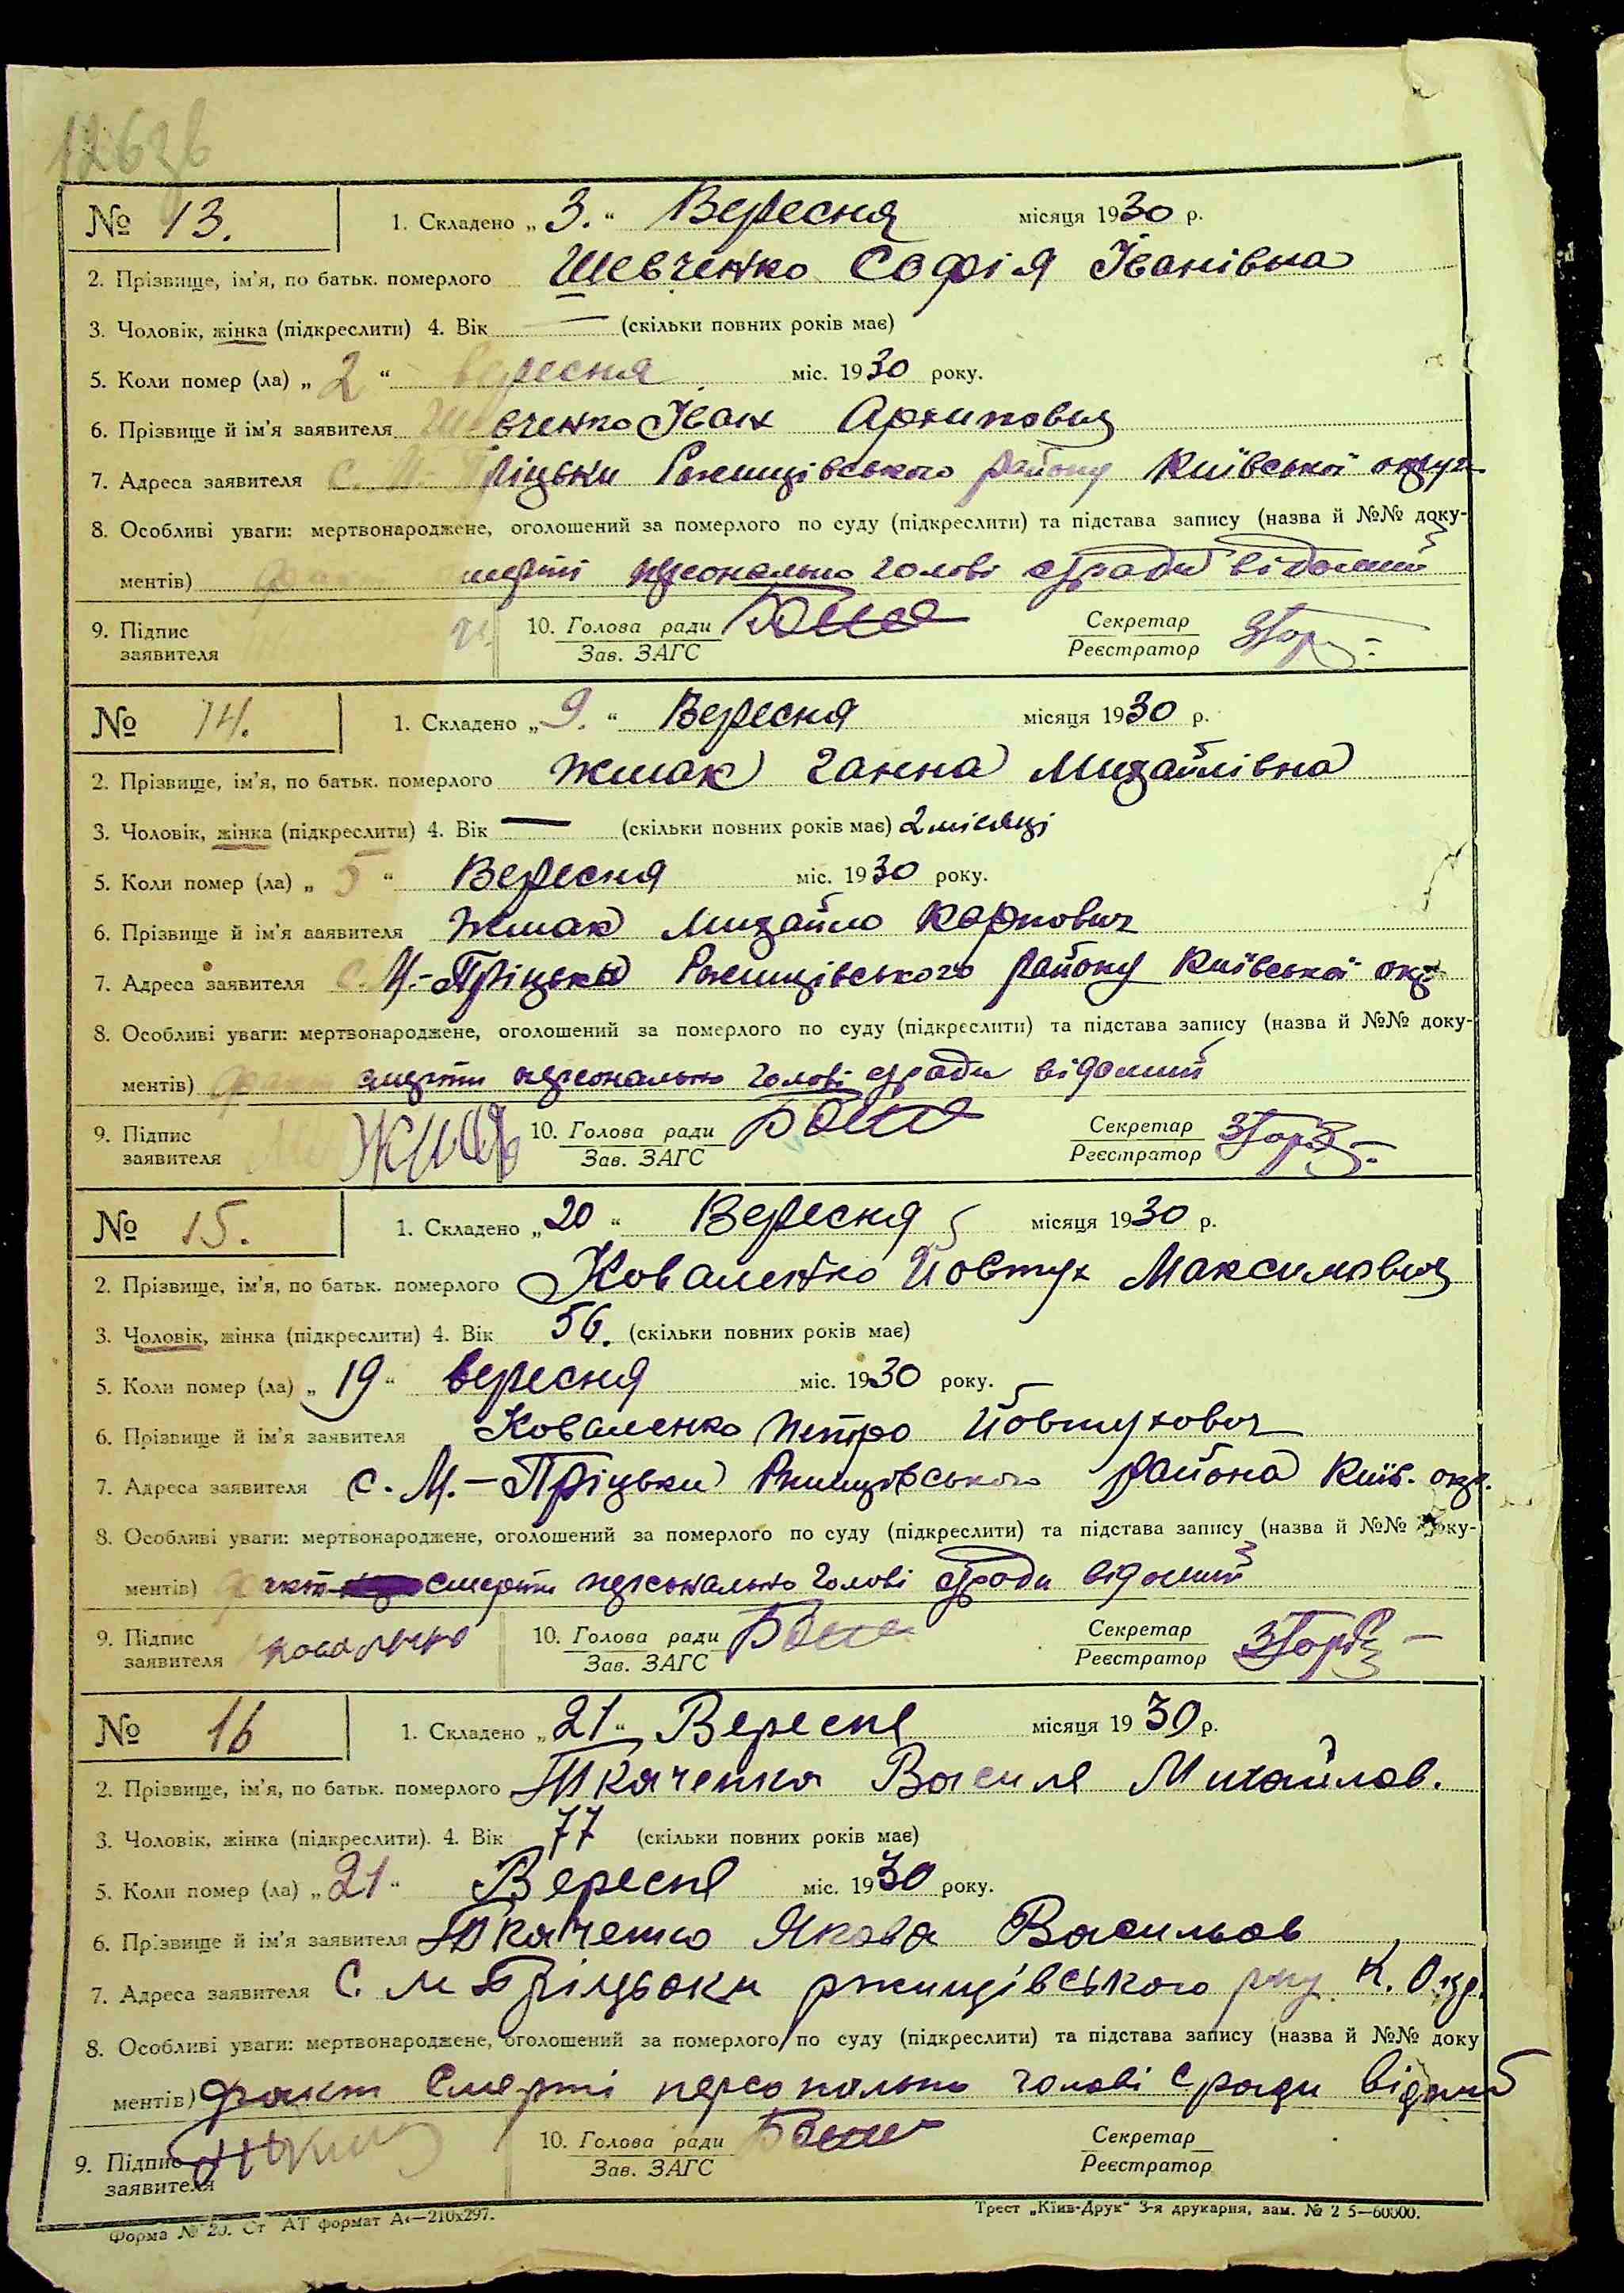 № 13. 1. Складено „ 3. “ Вересня місяця 1930 р.
2. Прізвище, ім'я, по батьк. померлого Шевченко Софія Іванівна
3. Чоловік, жінка (підкреслити) 4. Вік — (скільки повних років має)
5. Коли помер (ла) „ 2 “ вересня міс. 1930 року.
6. Прізвище й ім'я заявителя Шевченко Іван Архипович
7. Адреса заявителя с. М.-Пріцьки Ржищівського району Київської округи
8. Особливі уваги: мертвонароджене, оголошений за померлого по суду (підкреслити) та підстава запису (назва й №№ доку-
ментів) факт смерті персонально голові с/ради відомий
9. Підпис
заявителя
10. Голова ради
Зав. ЗАГС
Секретар
Реєстратор
№ 14. 1. Складено „ 9. “ Вересня місяця 1930 р.
2. Прізвище, ім'я, по батьк. померлого Жмак Ганна Михайлівна
3. Чоловік, жінка (підкреслити) 4. Вік — (скільки повних років має) 2 місяці
5. Коли помер (ла) „ 5 “ Вересня міс. 1930 року.
6. Прізвище й ім'я заявителя Жмак Михайло Карпович
7. Адреса заявителя с. М.-Пріцьки Ржищівського району Київської окр.
8. Особливі уваги: мертвонароджене, оголошений за померлого по суду (підкреслити) та підстава запису (назва й №№ доку-
ментів) факт смерти персонально голові с/ради відомий
9. Підпис
заявителя Жмак
10. Голова ради
Зав. ЗАГС
Секретар
Реєстратор
№ 15. 1. Складено „ 20 “ Вересня місяця 1930 р.
2. Прізвище, ім'я, по батьк. померлого Коваленко Йовтух Максимович
3. Чоловік, жінка (підкреслити) 4. Вік 56. (скільки повних років має)
5. Коли помер (ла) „ 19 “ вересня міс. 1930 року.
6. Прізвище й ім'я заявителя Коваленко Петро Йовтухович
7. Адреса заявителя с. М.-Пріцьки Ржищівського района Київ. окр.
8. Особливі уваги: мертвонароджене, оголошений за померлого по суду (підкреслити) та підстава запису (назва й №№ доку-
ментів) факт смерти персонально голові с/ради відомий
9. Підпис
заявителя
10. Голова ради
Зав. ЗАГС
Секретар
Реєстратор
№ 16 1. Складено „ 21 “ Вересня місяця 1930 р.
2. Прізвище, ім'я, по батьк. померлого Ткаченка Василя Михайлов.
3. Чоловік, жінка (підкреслити). 4. Вік 77 (скільки повних років має)
5. Коли помер (ла) „ 21 “ Вересня міс. 1930 року.
6. Прізвище й ім'я заявителя Ткаченко Якова Васильов
7. Адреса заявителя С. М Пріцьоки ржищівського рну. К. Окр.
8. Особливі уваги: мертвонароджене, оголошений за померлого по суду (підкреслити) та підстава запису (назва й №№ доку
ментів) факт Смерті персонально голові с ради відомий
9. Підпис
заявителя
10. Голова ради
Зав. ЗАГС
Секретар
Реєстратор
Форма № 20. Ст АТ формат А₄—210х297.
Трест „Київ-Друк“ 3-я друкарня, зам. № 2 5—60000.